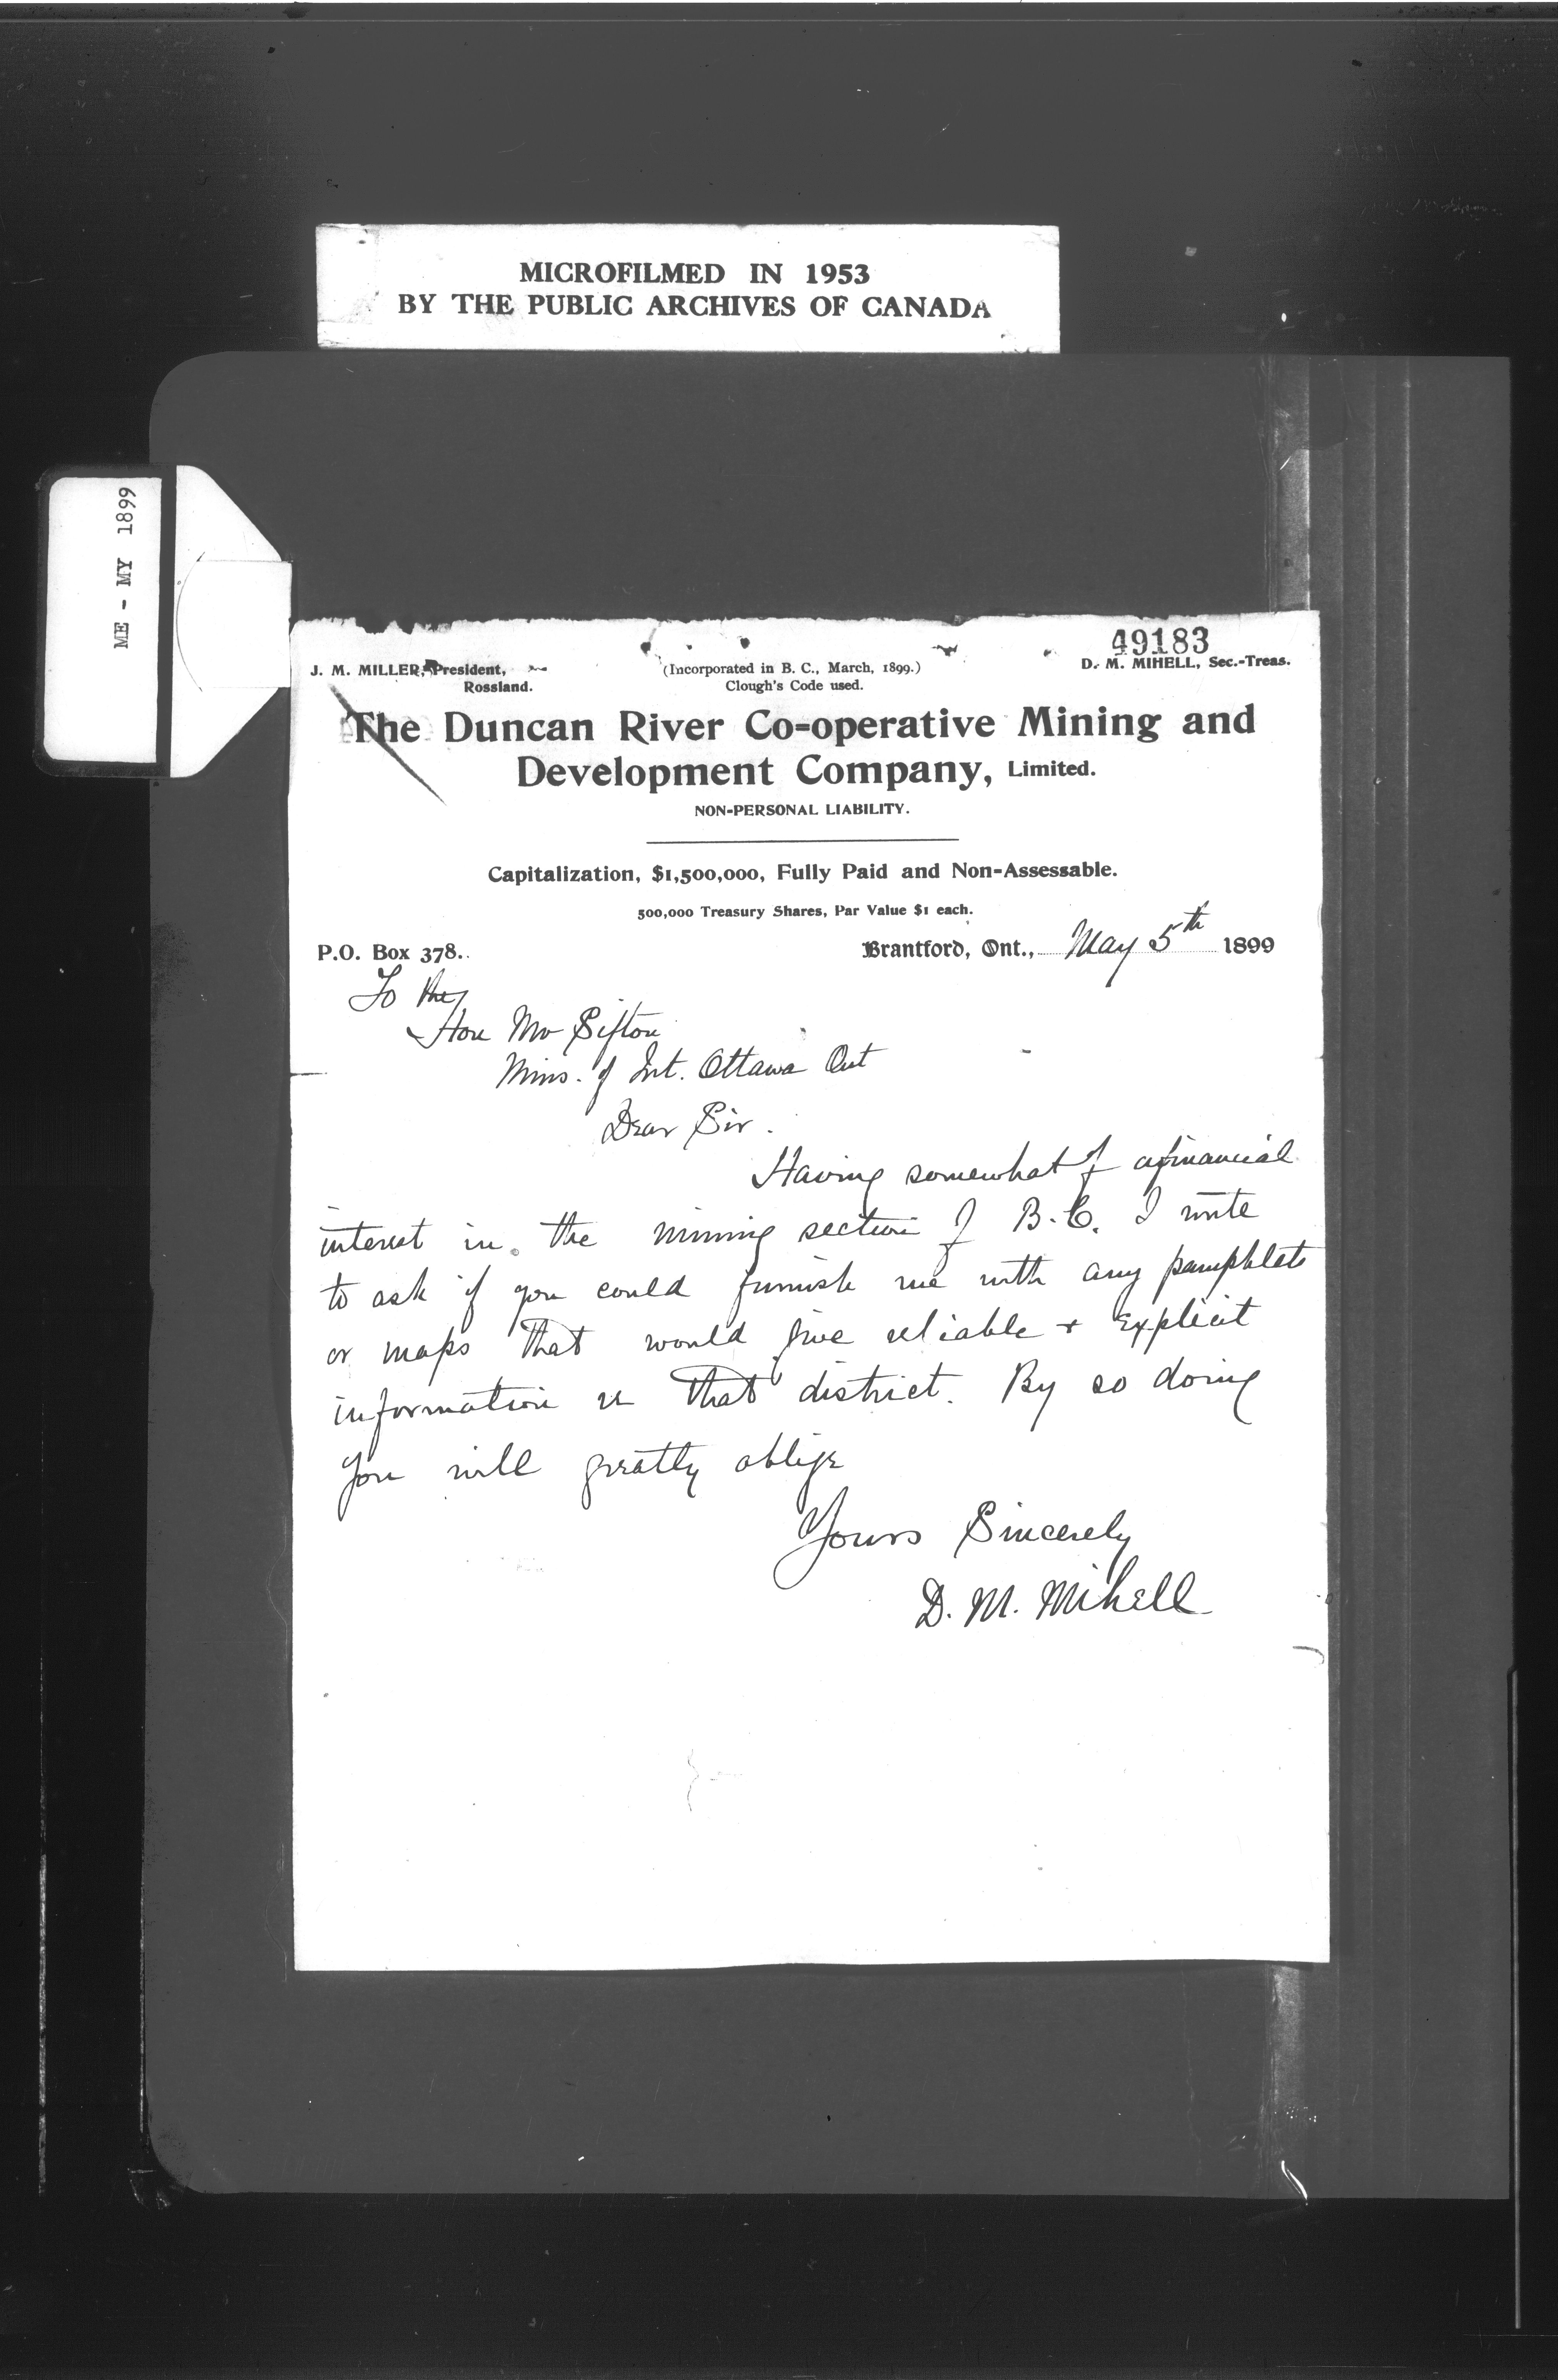 MICROFILMED IN 1953
BY THE PUBLIC ARCHIVES OF CANADA
ME - MY 1899
49183
J. M. MILLER, President,
Rossland.
(Incorporated in B. C., March, 1899.)
Clough's Code used.
D. M. MIHELL, Sec.-Treas.
The Duncan River Co=operative Mining and
Development Company, Limited.
NON-PERSONAL LIABILITY.
Capitalization, $1,500,000, Fully Paid and Non-Assessable.
500,000 Treasury Shares, Par Value $1 each.
P.O. Box 378.
Brantford, Ont., May 5th 1899
To the
Hon Mr Sifton
Mins. of Int. Ottawa Ont
Dear Sir.
Having somewhat of a financial
interest in the mining section of B.C. I write
to ask if you could furnish me with any pamphlets
or maps that would give reliable + explicit
information in that district. By so doing
you will greatly oblige
Yours Sincerely
D. M. Mihell